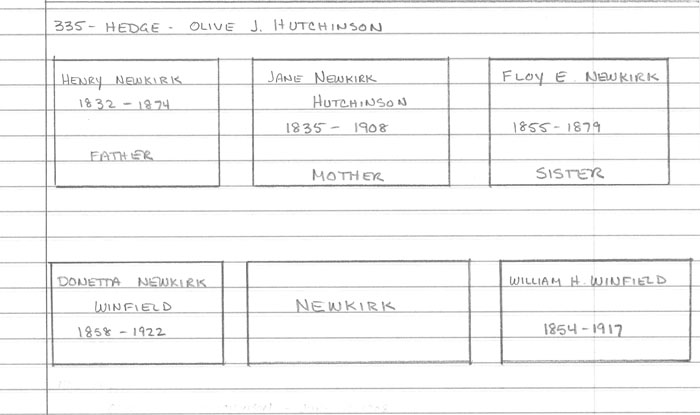 335- HEDGE - OLIVE J. HUTCHINSON
HENRY NEWKIRK
1832 - 1874
FATHER
JANE NEWKIRK
HUTCHINSON
1835 - 1908
MOTHER
FLOY E. NEWKIRK
1855 - 1879
SISTER
DONETTA NEWKIRK
WINFIELD
1858 - 1922
NEWKIRK
WILLIAM H. WINFIELD
1854 - 1917